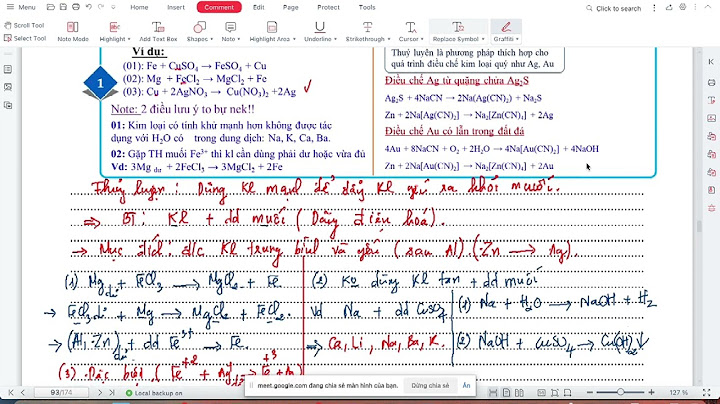 Menu
Home
Insert
Comment
Edit
Page
Protect
Tools
Click to search
Scroll Tool
Select Tool
Note Mode
Highlight
Add Text Box
Shapes
Note
Highlight Area
Underline
Strikethrough
Cursor
Replace Symbol
Graffiti
Ví dụ:
(01): Fe + CuSO₄ → FeSO₄ + Cu
(02): Mg + FeCl₂ → MgCl₂ + Fe
(03): Cu + 2AgNO₃ → Cu(NO₃)₂ +2Ag
1
Note: 2 điều lưu ý to bự nek!!
01: Kim loại có tính khử mạnh hơn không được tác
dụng với H₂O có trong dung dịch: Na, K, Ca, Ba.
02: Gặp TH muối Fe³⁺ thì kl cần dùng phải dư hoặc vừa đủ
Vd: 3Mg dư + 2FeCl₃ → 3MgCl₂ + 2Fe
Thuỷ luyện là phương pháp thích hợp cho
quá trình điều chế kim loại quý như Ag, Au
Điều chế Ag từ quặng chứa Ag₂S
Ag₂S + 4NaCN → 2Na(Ag(CN)₂) + Na₂S
Zn + 2Na[Ag(CN)₂] → Na₂[Zn(CN)₄] + 2Ag
Điều chế Au có lẫn trong đất đá
4Au + 8NaCN + O₂ + 2H₂O → 4Na[Au(CN)₂] + 4NaOH
Zn + 2Na[Au(CN)₂] → Na₂[Zn(CN)₄] + 2Au
Thủy luyện : Dùng Kl mạnh để đẩy Kl yếu ra khỏi muối.
⇒ BT: Kl + dd muối (Dãy điện hoá).
→ Mục đích: đ/c Kl trung bình và yếu (sau Al).(Zn → Ag).
(1) Mg dư + FeCl₃ → MgCl₂ + Fe
→ FeCl₃ dư + Mg → MgCl₂ + FeCl₂.
→ (Al, Zn) dư + dd Fe³⁺ → Fe.
(2) Ko dùng Kl tan + dd muối
Vd Na + dd CuSO₄
⇒ Ca, Li, Na, Ba, K.
(1) Na + H₂O → NaOH + H₂
(2) NaOH + CuSO₄ → Cu(OH)₂↓
(3) Đặc biệt (Fe⁺² + Ag
93/174
Local backup on
meet.google.com đang chia sẻ màn hình của bạn.
Dừng chia sẻ
Ẩn
127 %